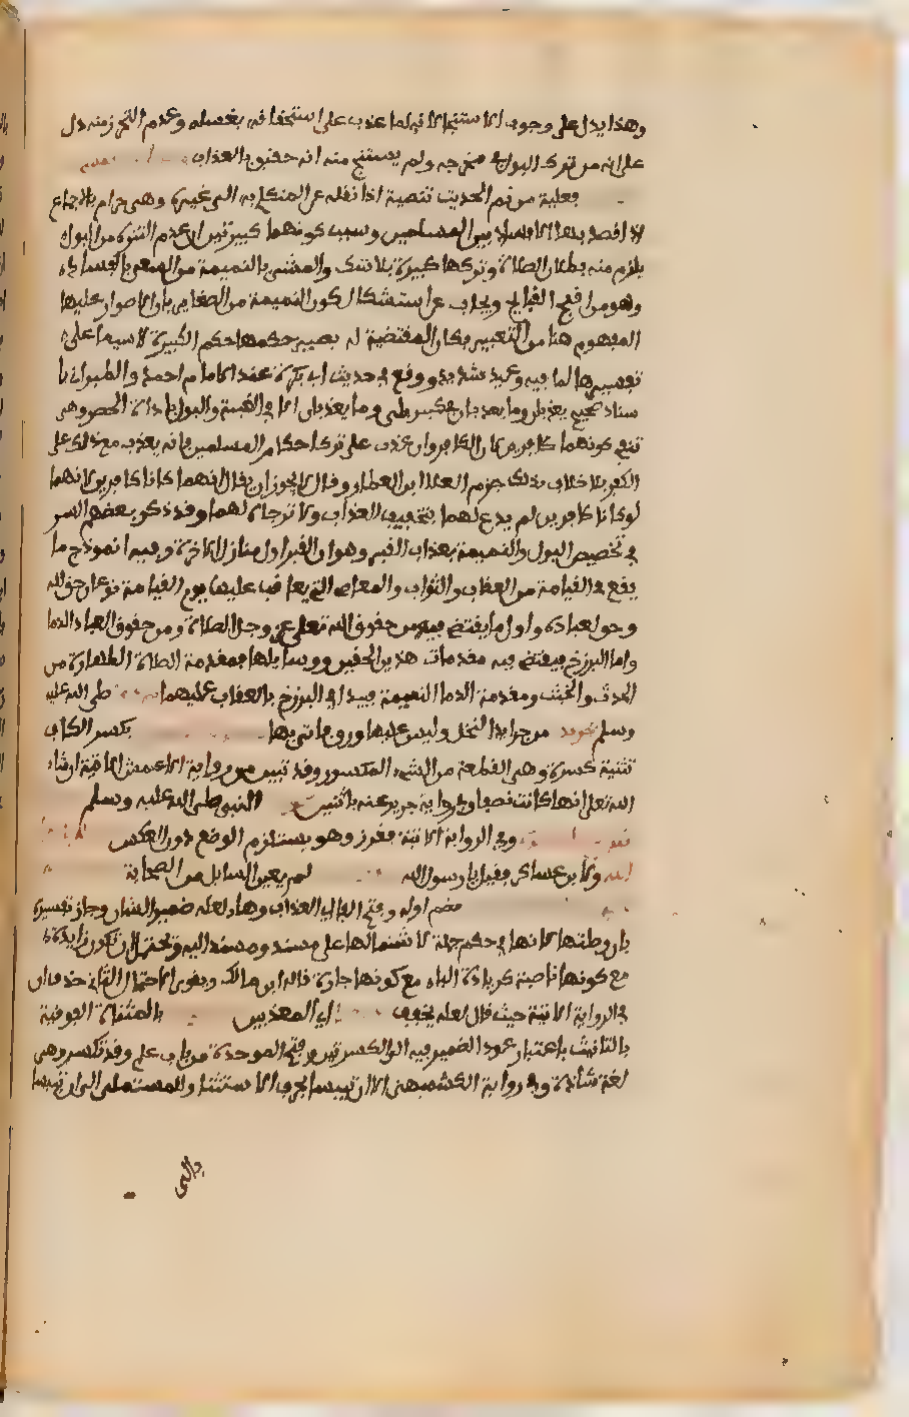 وهذا يدل على وجوب الاستنجا لانه لما عذب على استخفافه بغسله وعدم التحرز منه دل
على انه من ترك البول في مخرجه ولم يستنج منه انه حقيق بالعذاب
فعيلة من نم الحديث تنمية اذا نقله عن المتكلم به الى غيره وهي حرام بالاجماع
اذا قصد بها الافساد بين المسلمين وسبب كونهما كبيرتين ان عدم التنزه من البول
يلزم منه بطلان الصلاة وتركها كبيرة بلا شك والمشي بالنميمة من السعي بالفساد
وهو من اقبح القبايح ويجاب عن استشكال كون النميمة من الصغاير بان الاصرار عليها
المفهوم هنا من التعبير بكان المقتضية له يصير حكمها حكم الكبيرة لا سيما على
تفسيرها لما فيه وعيد شديد ووقع في حديث ابي بكرة عند الامام احمد والطبراني با
سناد صحيح يعذبان وما يعذبان في كبير بلى وما يعذبان الا في الغيبة والبول باداة الحصر وهي
تنفي كونهما كافرين لان الكافر وان عذب على ترك احكام المسلمين فانه يعذب مع ذلك على
الكفر بلا خلاف بذلك جزم العلا ابن العطار وقال لا يجوز ان يقال انهما كانا كافرين لانهما
لو كانا كافرين لم يدع لهما بتخفيف العذاب ولا ترجاه لهما وقد ذكر بعضهم السر
في تخصيص البول والنميمة بعذاب القبر وهو ان القبر اول منازل الاخرة وفيه انموذج ما
يقع في القيامة من العقاب والثواب والمعاصي التي يعاقب عليها يوم القيامة نوعان حق لله
وحق لعباده واول ما يقتضى فيه من حقوق الله تعالى عز وجل الصلاة ومن حقوق العباد الدما
واما البرزخ فيقتضى فيه مقدمات هذين الحقين ووسايلها فمقدمة الصلاة الطهارة من
الحدث والخبث ومقدمة الدما النميمة فيبدا في البرزخ بالعقاب عليهما صلى الله عليه
وسلم من جرايد النخل وليس عليها ورق فاتي بها بكسر الكاف
تثنية كسرة وهي القطعة من الشيء المكسور وقد تبين من رواية الاعمش الاتية ان شاء
الله تعالى انها كانت نصفا وفي رواية جرير عنه باثنتين النبي صلى الله عليه وسلم
وفي الرواية الاتية فغرز وهو يستلزم الوضع دون العكس
ولابن عساكر فقيل يا رسول الله لم يعين السايل من الصحابة
بضم اوله وفتح الفا اي العذاب وها لعله ضمير الشان وجاز تفسيره
بان وصلتها لانها في حكم جملة لاشتمالها على مسند ومسند اليه ويحتمل ان تكون زايدة
مع كونها ناصبة كزيادة الباء مع كونها جارة قاله ابن مالك ويقوى الاحتمال الثاني حذف ان
في الرواية الاتية حيث قال لعله يخفف اي المعذبين بالمثناة الفوقية
بالتانيث باعتبار عود الضمير فيه الى الكسرتين وفتح الموحدة من باب علم وقد تكسر وهي
لغة شاذة وفي رواية الكشميهني الا ان تيبسا بحرف الاستثنا وللمستملي الى ان تيبسا
بالتي